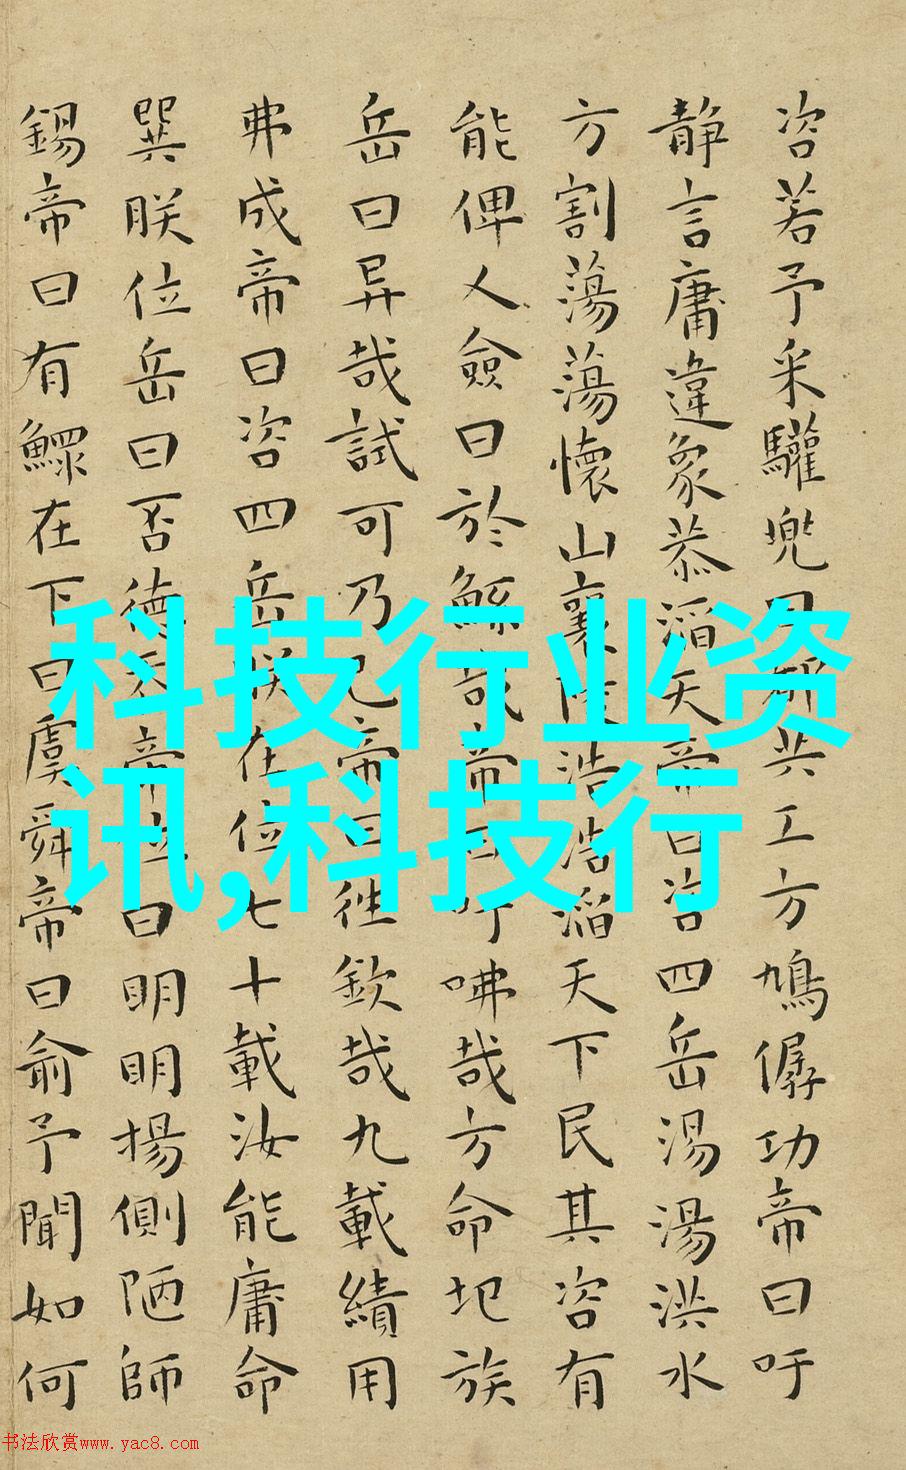 咨若予采驩兜曰都共工方鳩僝功帝曰吁
静言庸違象恭滔天帝曰咨四岳湯湯洪水
方割蕩蕩懷山襄陵浩浩滔天下民其咨有
能俾乂僉曰於鯀哉帝曰吁咈哉方命圮族
岳曰异哉試可乃已帝曰往欽哉九載績用
弗成帝曰咨四岳朕在位七十載汝能庸命
巽朕位岳曰否德忝帝位曰明明揚側陋師
錫帝曰有鰥在下曰虞舜帝曰俞予聞如何
科技行业资
讯,科技行
书法欣赏www.yac8.com